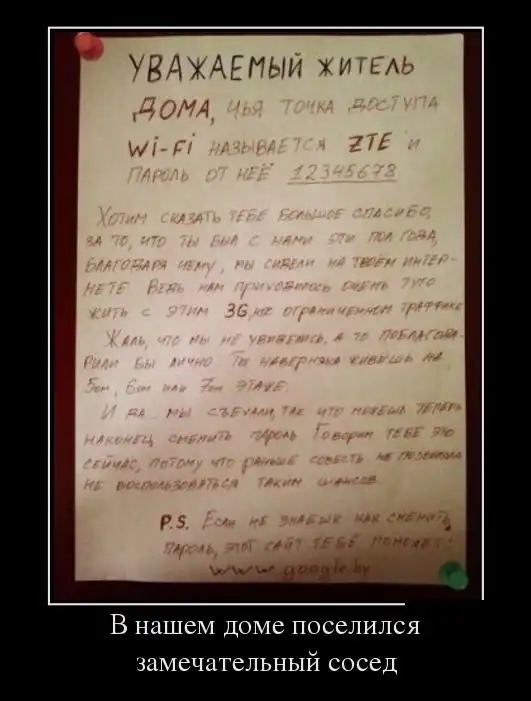 УВАЖАЕМЫЙ ЖИТЕЛЬ
ДОМА, ЧЬЯ ТОЧКА ДОСТУПА
Wi-Fi НАЗЫВАЕТСЯ ZTE И
ПАРОЛЬ ОТ НЕЁ 12345678
ХОТИМ СКАЗАТЬ ТЕБЕ БОЛЬШОЕ СПАСИБО,
ЗА ТО, ЧТО ТЫ БЫЛ С НАМИ ЭТИ ПОЛ ГОДА,
БЛАГОДАРЯ ЧЕМУ, МЫ СИДЕЛИ НА ТВОЁМ ИНТЕР-
НЕТЕ ВЕДЬ НАМ ПРИХОДИЛОСЬ ОЧЕНЬ ТУГО
ЖИТЬ С ЭТИМ 3G, ОГРАНИЧЕННОМ ТРАФФИКЕ
ЖАЛЬ, ЧТО МЫ НЕ УВИДЕЛИСЬ, А ТО ПОБЛАГОДА-
РИЛИ БЫ ЛИЧНО ТЫ НАВЕРНЯКА ЖИВЁШЬ НА
5ом, 6ом ИЛИ 7ом ЭТАЖЕ.
И ДА... МЫ СЪЕХАЛИ, ТАК ЧТО МОЖЕШЬ ТЕПЕРЬ
НАКОНЕЦ СМЕНИТЬ ПАРОЛЬ ГОВОРИМ ТЕБЕ ЭТО
СЕЙЧАС, ПОТОМУ ЧТО РАНЬШЕ СОВЕСТЬ НЕ ПОЗВОЛИЛА
НЕ ВОСПОЛЬЗОВАТЬСЯ ТАКИМ ШАНСОМ
P.S. ЕСЛИ НЕ ЗНАЕШЬ КАК СМЕНИТЬ
ПАРОЛЬ, ЭТОТ САЙТ ТЕБЕ ПОМОЖЕТ:
www.google.by
В нашем доме поселился
замечательный сосед